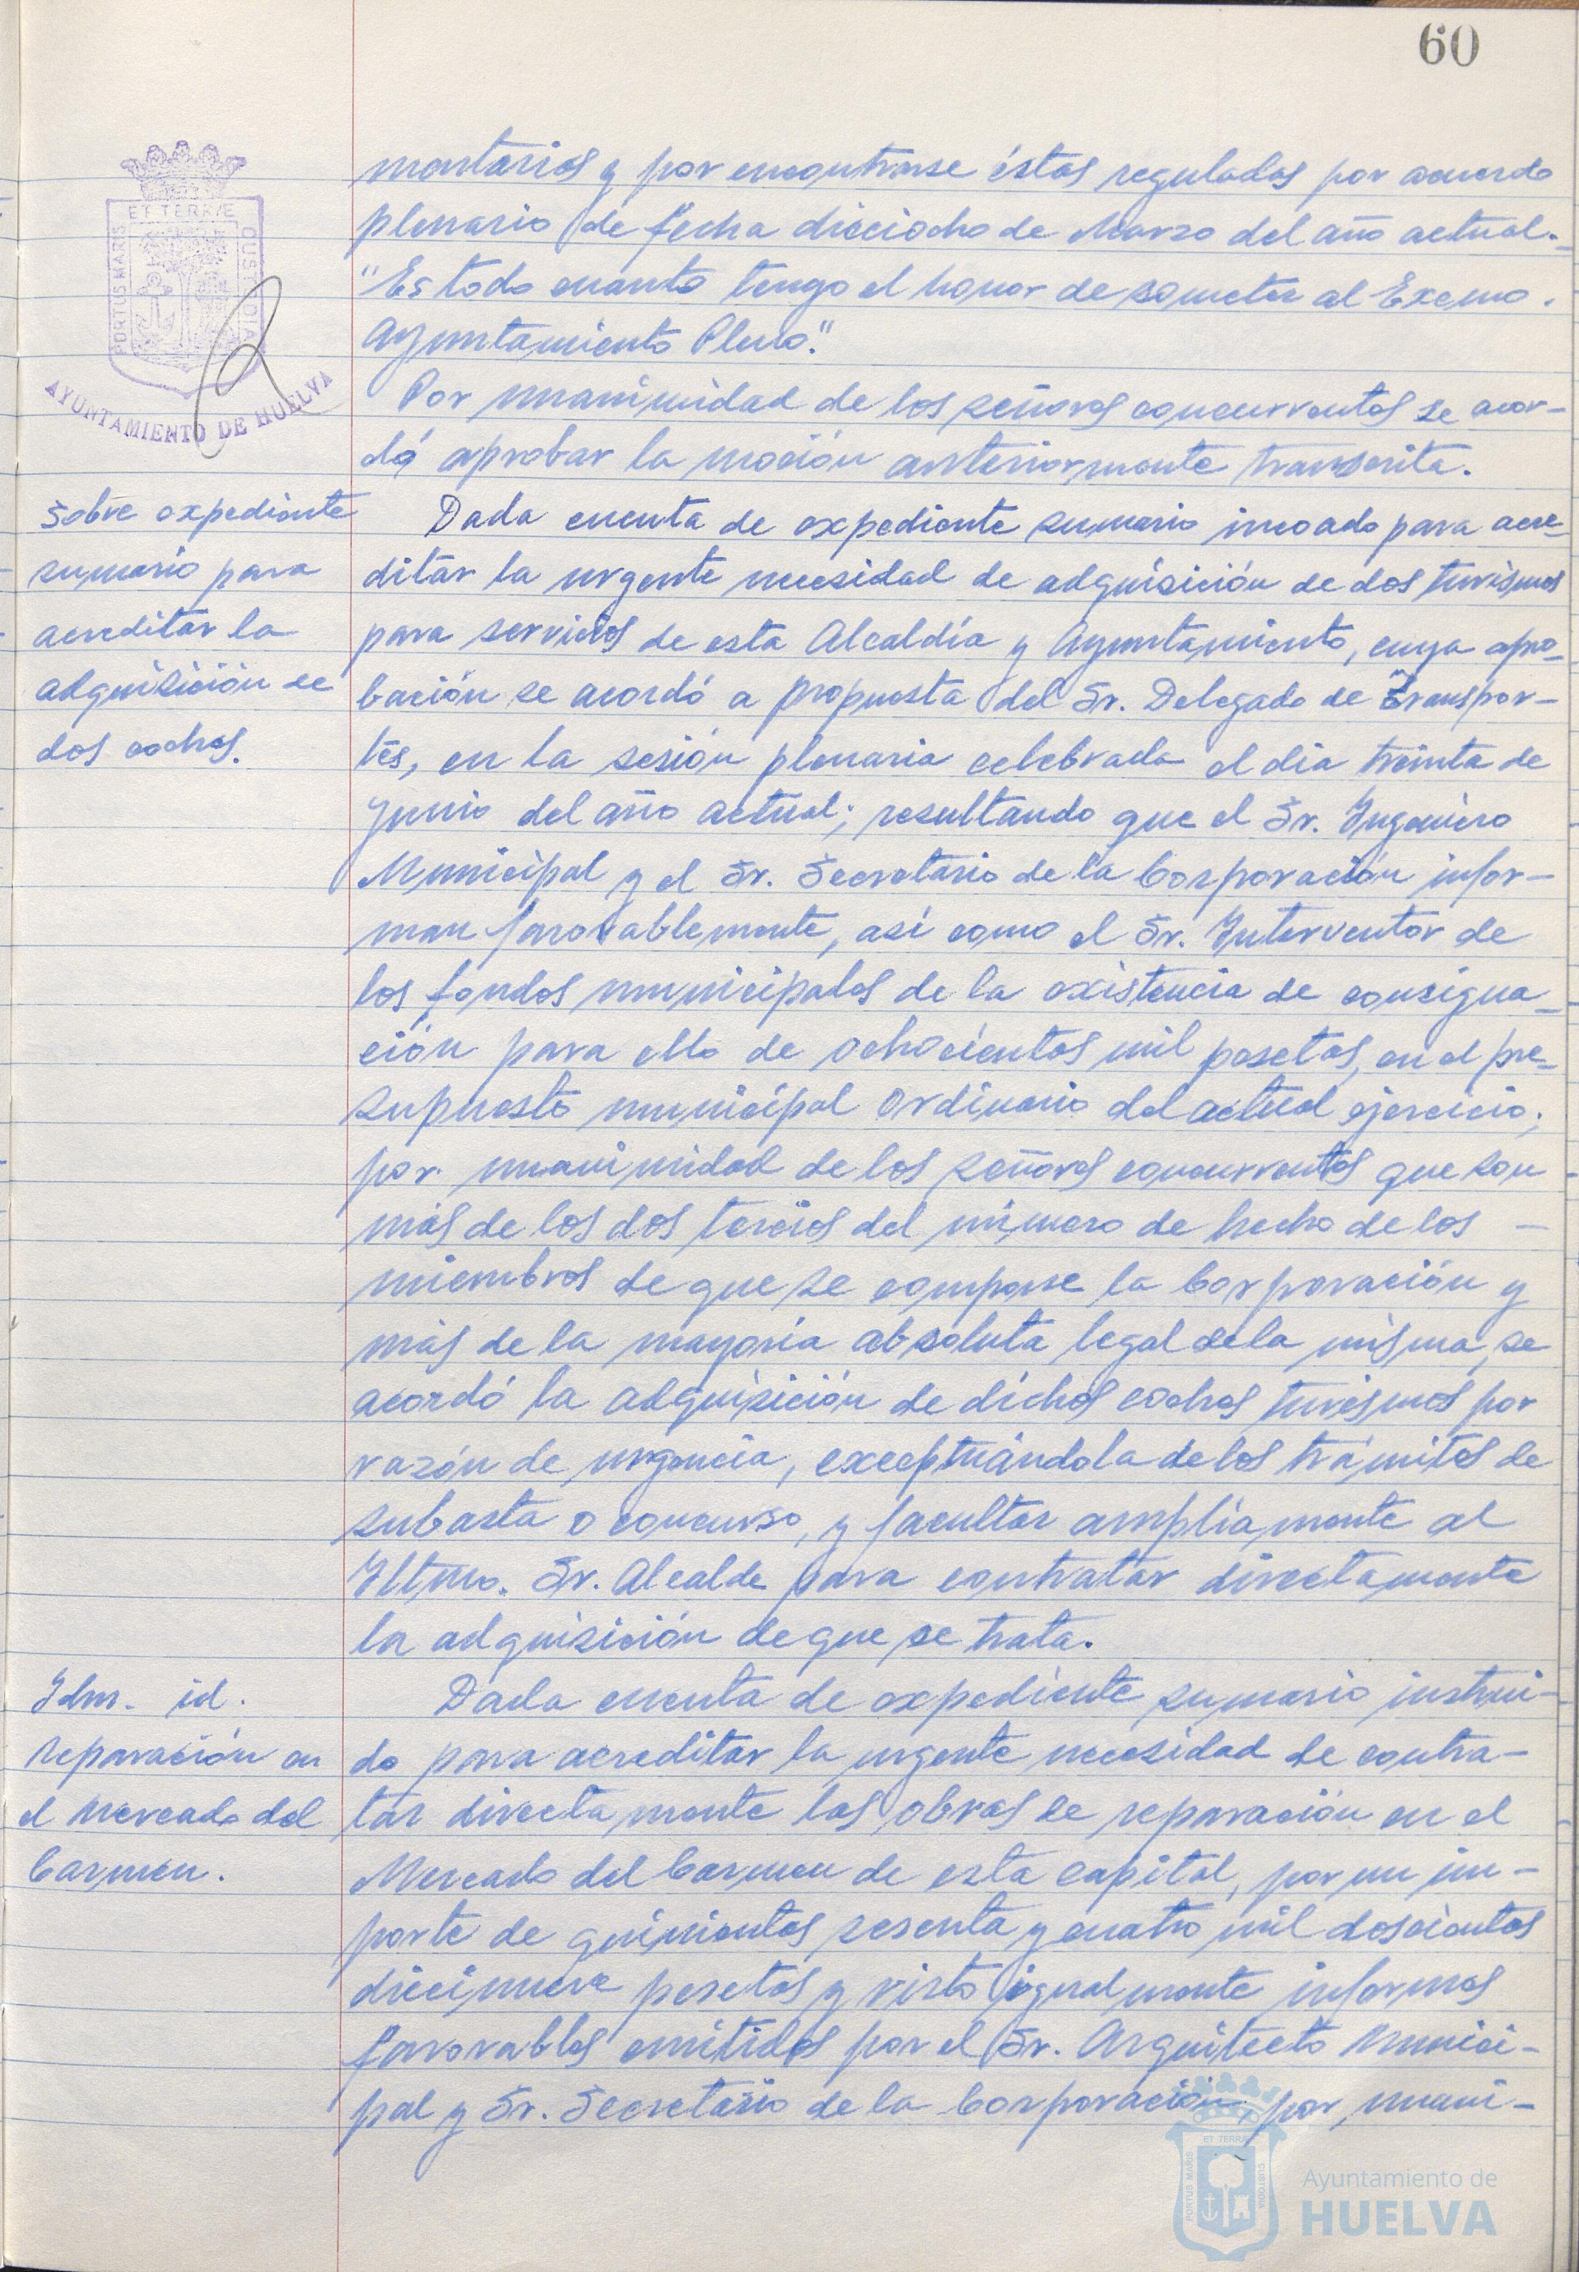 60
ET TERRÆ
PORTUS MARIS
CUSTODIA
AYUNTAMIENTO DE HUELVA
montarios y por encontrarse éstas reguladas por acuerdo
plenario de fecha dieciocho de Marzo del año actual.-
"Es todo cuanto tengo el honor de someter al Excmo.
Ayuntamiento Pleno."
Por unanimidad de los señores concurrentes se acor-
dó aprobar la moción anteriormente transcrita.
Sobre expediente
sumario para
acreditar la
adquisición de
dos coches.
Dada cuenta de expediente sumario incoado para acre-
ditar la urgente necesidad de adquisición de dos turismos
para servicios de esta Alcaldía y Ayuntamiento, cuya apro-
bación se acordó a propuesta del Sr. Delegado de Transpor-
tes, en la sesión plenaria celebrada el dia treinta de
Junio del año actual; resultando que el Sr. Ingeniero
Municipal y el Sr. Secretario de la Corporación infor-
man favorablemente, así como el Sr. Interventor de
los fondos municipales de la existencia de consigna-
ción para ello de ochocientas mil pesetas, en el pre-
supuesto municipal Ordinario del actual ejercicio;
por unanimidad de los señores concurrentes que son
más de los dos tercios del número de hecho de los -
miembros de que se compone la Corporación y
más de la mayoría absoluta legal de la misma, se
acordó la adquisición de dichos coches turismos por
razón de urgencia, exceptuándola de los trámites de
subasta o concurso, y facultar ampliamente al
Iltmo. Sr. Alcalde para contratar directamente
la adquisición de que se trata.
Idm. id.
reparación en
el Mercado del
Carmen.
Dada cuenta de expediente sumario instrui-
do para acreditar la urgente necesidad de contra-
tar directamente las obras de reparación en el
Mercado del Carmen de esta capital, por un im-
porte de quinientas sesenta y cuatro mil doscientas
diecinueve pesetas y visto igualmente informes
favorables emitidos por el Sr. Arquitecto Munici-
pal y Sr. Secretario de la Corporación por unani-
ET TERRÆ
PORTUS MARIS
CUSTODIA
Ayuntamiento de
HUELVA